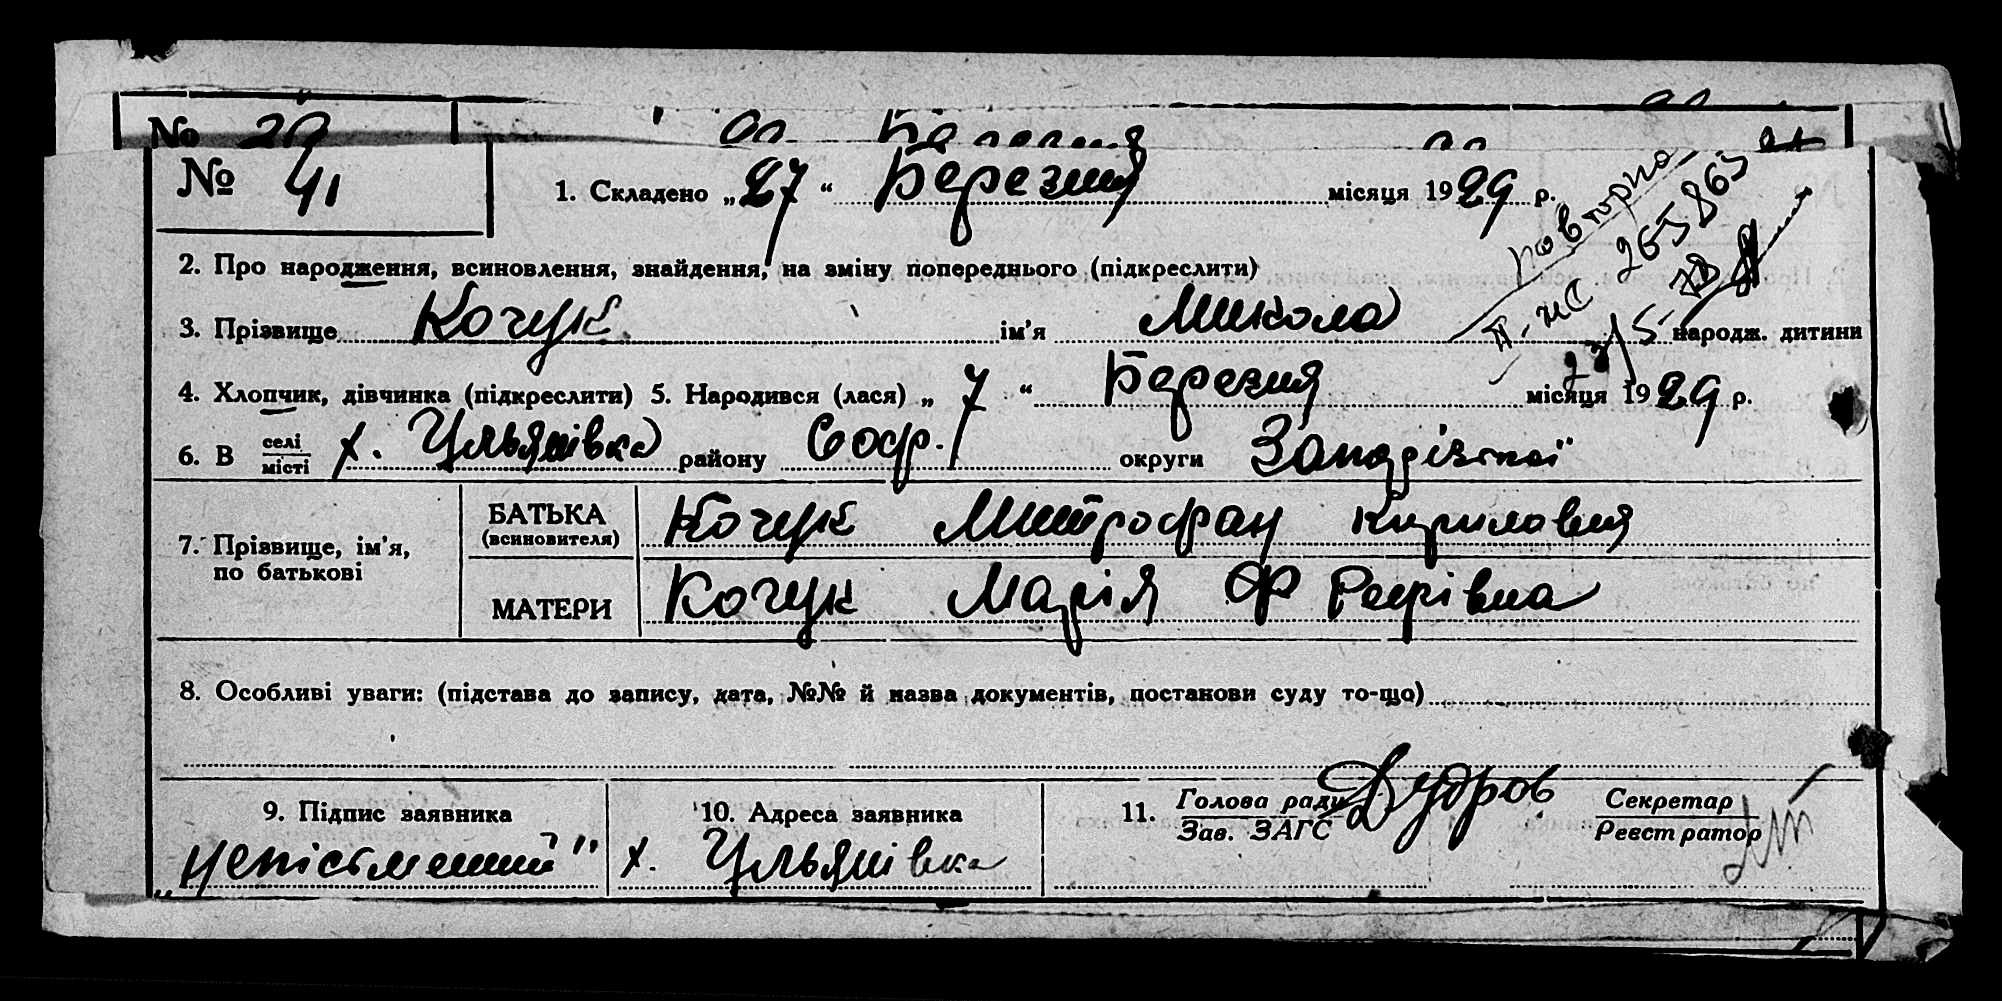 № 20
№ 41
1. Складено „27“ Березня місяця 1929 р.
повторно
II-ЖС 265865
23/5-78
2. Про народження, всиновлення, знайдення, на зміну попереднього (підкреслити)
3. Прізвище Кочук ім'я Микола народж. дитини
4. Хлопчик, дівчинка (підкреслити) 5. Народився (лася) „7“ Березня місяця 1929 р.
6. В селі/місті х. Ульянівка району Соф. округи Запорізької
7. Прізвище, ім'я, по батькові
БАТЬКА (всиновителя) Кочук Митрофан Кириловия
МАТЕРИ Кочук Марія
8. Особливі уваги: (підстава до запису, дата, №№ й назва документів, постанови суду то-що)
9. Підпис заявника
„непісьменний"
10. Адреса заявника
х. Ульянівка
11. Голова ради/Зав. ЗАГС
Секретар/Реєстратор